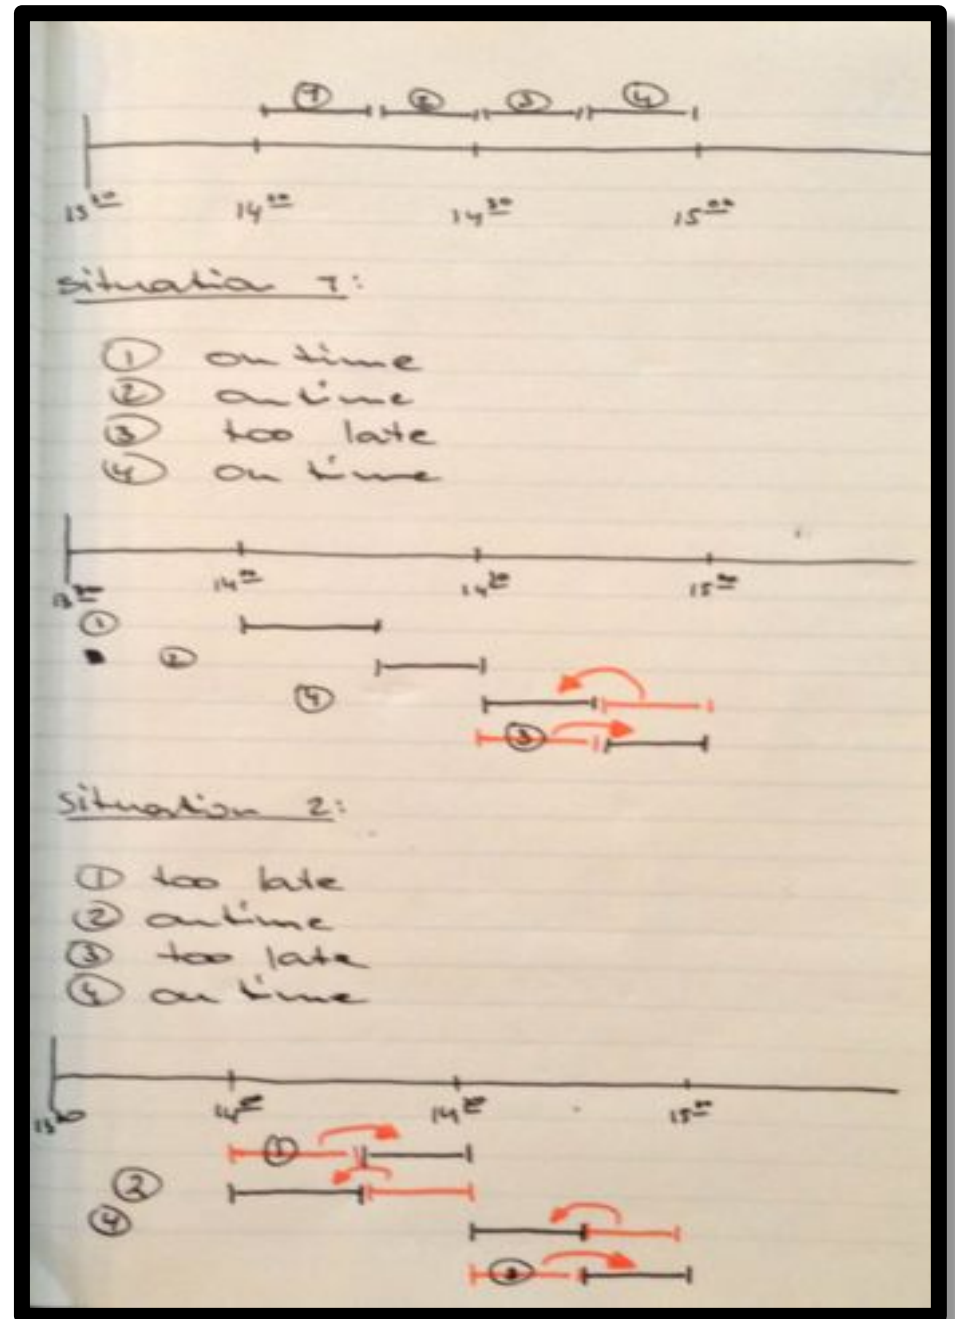 ① ② ③ ④
13³⁰ 14⁰⁰ 14³⁰ 15⁰⁰
situation 1:
① on time
② on time
③ too late
④ on time
13³⁰ 14⁰⁰ 14³⁰ 15⁰⁰
①
②
④
③
situation 2:
① too late
② on time
③ too late
④ on time
13³⁰ 14⁰⁰ 14³⁰ 15⁰⁰
①
②
④
③